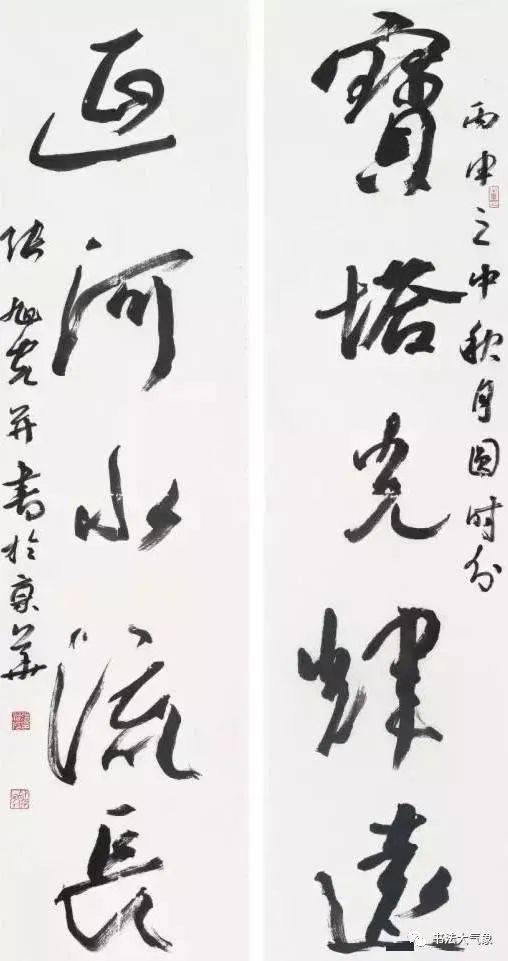 寶塔光煇遠
丙申之中秋月圆时分
延河水流長
张旭光并書於京華
书法大气象